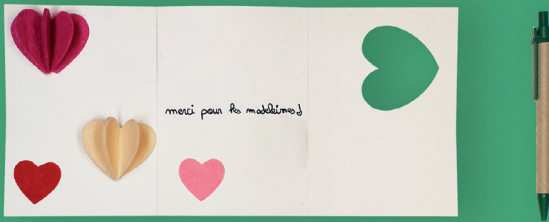 merci pour les madeleines !